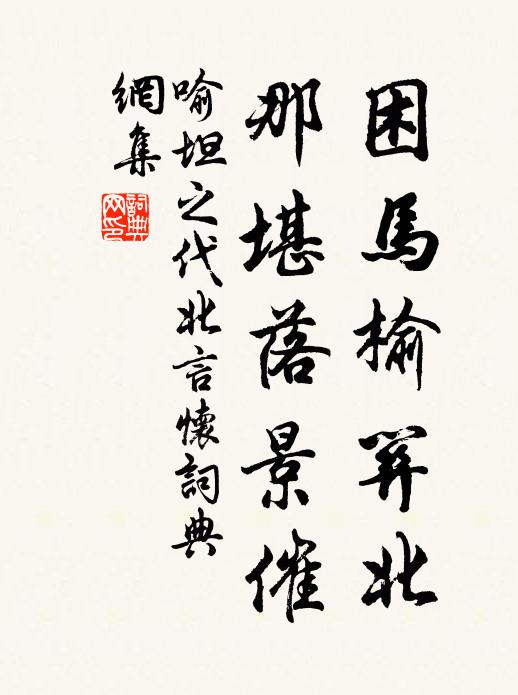 困馬榆關北
那堪落景催
喻坦之代北言懷詞典
網集
詞典
网印